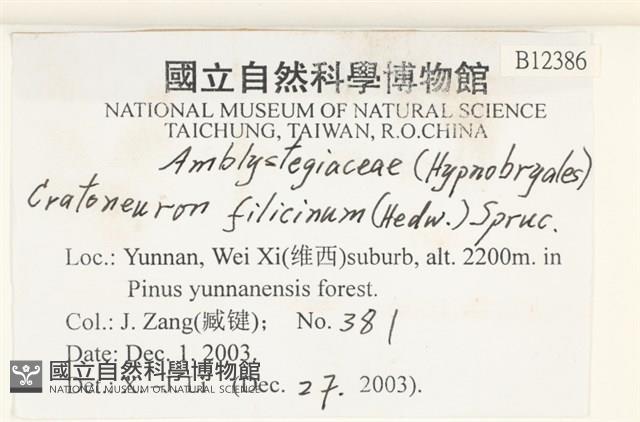 B12386
國立自然科學博物館
NATIONAL MUSEUM OF NATURAL SCIENCE
TAICHUNG, TAIWAN, R.O.CHINA
Amblystegiaceae (Hypnobryales)
Cratoneuron filicinum (Hedw.) Spruc.
Loc.: Yunnan, Wei Xi(维西)suburb, alt. 2200m. in
Pinus yunnanensis forest.
Col.: J. Zang(臧键); No. 381
Date: Dec. 1, 2003.
(Dec. 27. 2003).
國立自然科學博物館
NATIONAL MUSEUM OF NATURAL SCIENCE